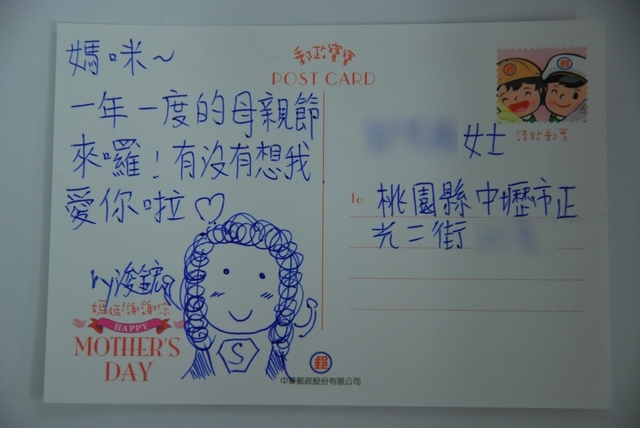 媽咪～
一年一度的母親節
來囉！有沒有想我
愛你啦♡
by
媽媽!謝謝您
HAPPY
MOTHER'S
DAY
S
郵政寶寶
POST CARD
請貼郵票
女士
to 桃園縣中壢市正
光二街
郵
中華郵政股份有限公司